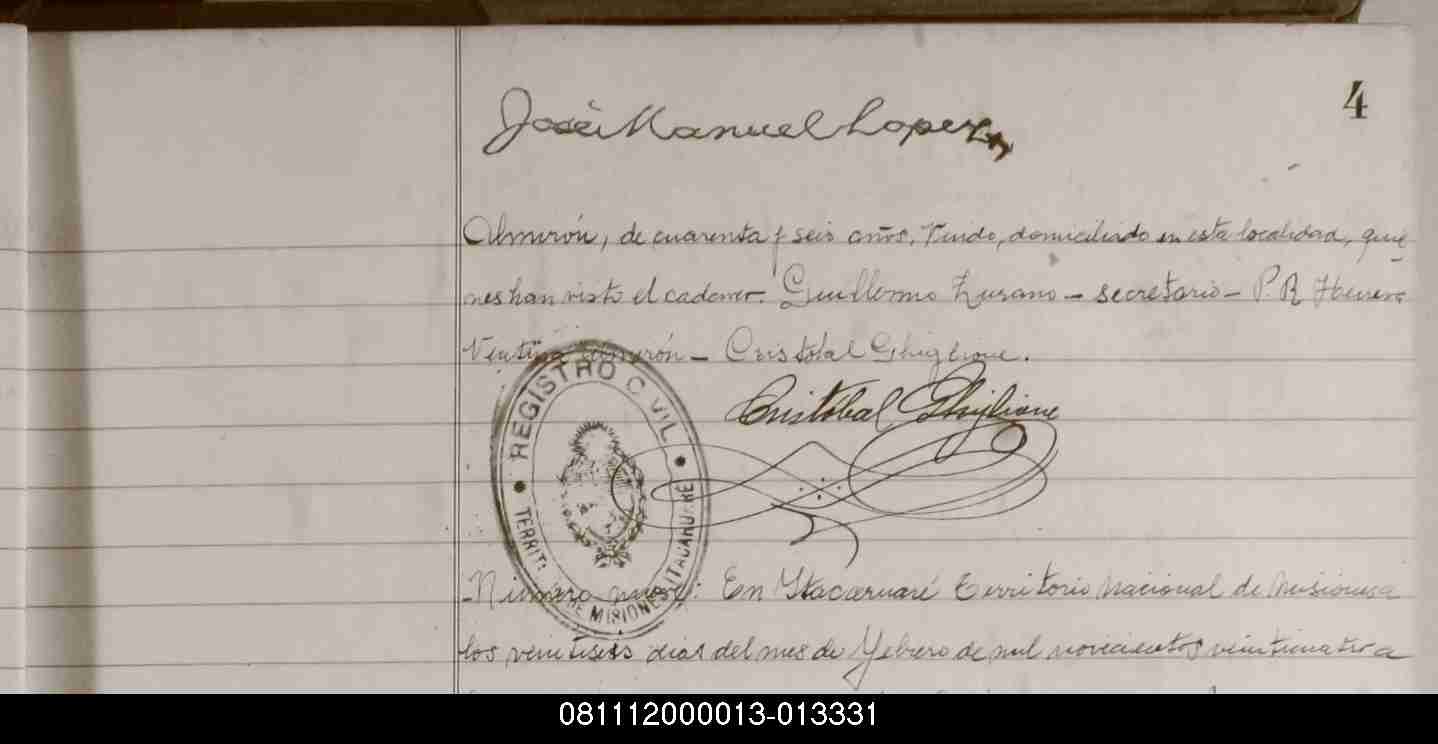 4
José Manuel Lopez
Almirón, de cuarenta y seis años, viudo, domiciliado en esta localidad, quie-
nes han visto el cadaver. Guillermo Lusano - secretario - P. R.
Almirón - Cristobal Ghiglione.
Cristobal Ghiglione
REGISTRO CIVIL
TERRIT. DE MISIONES ITACARUARE
Número nueve: En Itacaruaré Territorio Nacional de Misiones a
los veintiseis dias del mes de Febrero de mil novecientos veinticuatro a
081112000013-013331